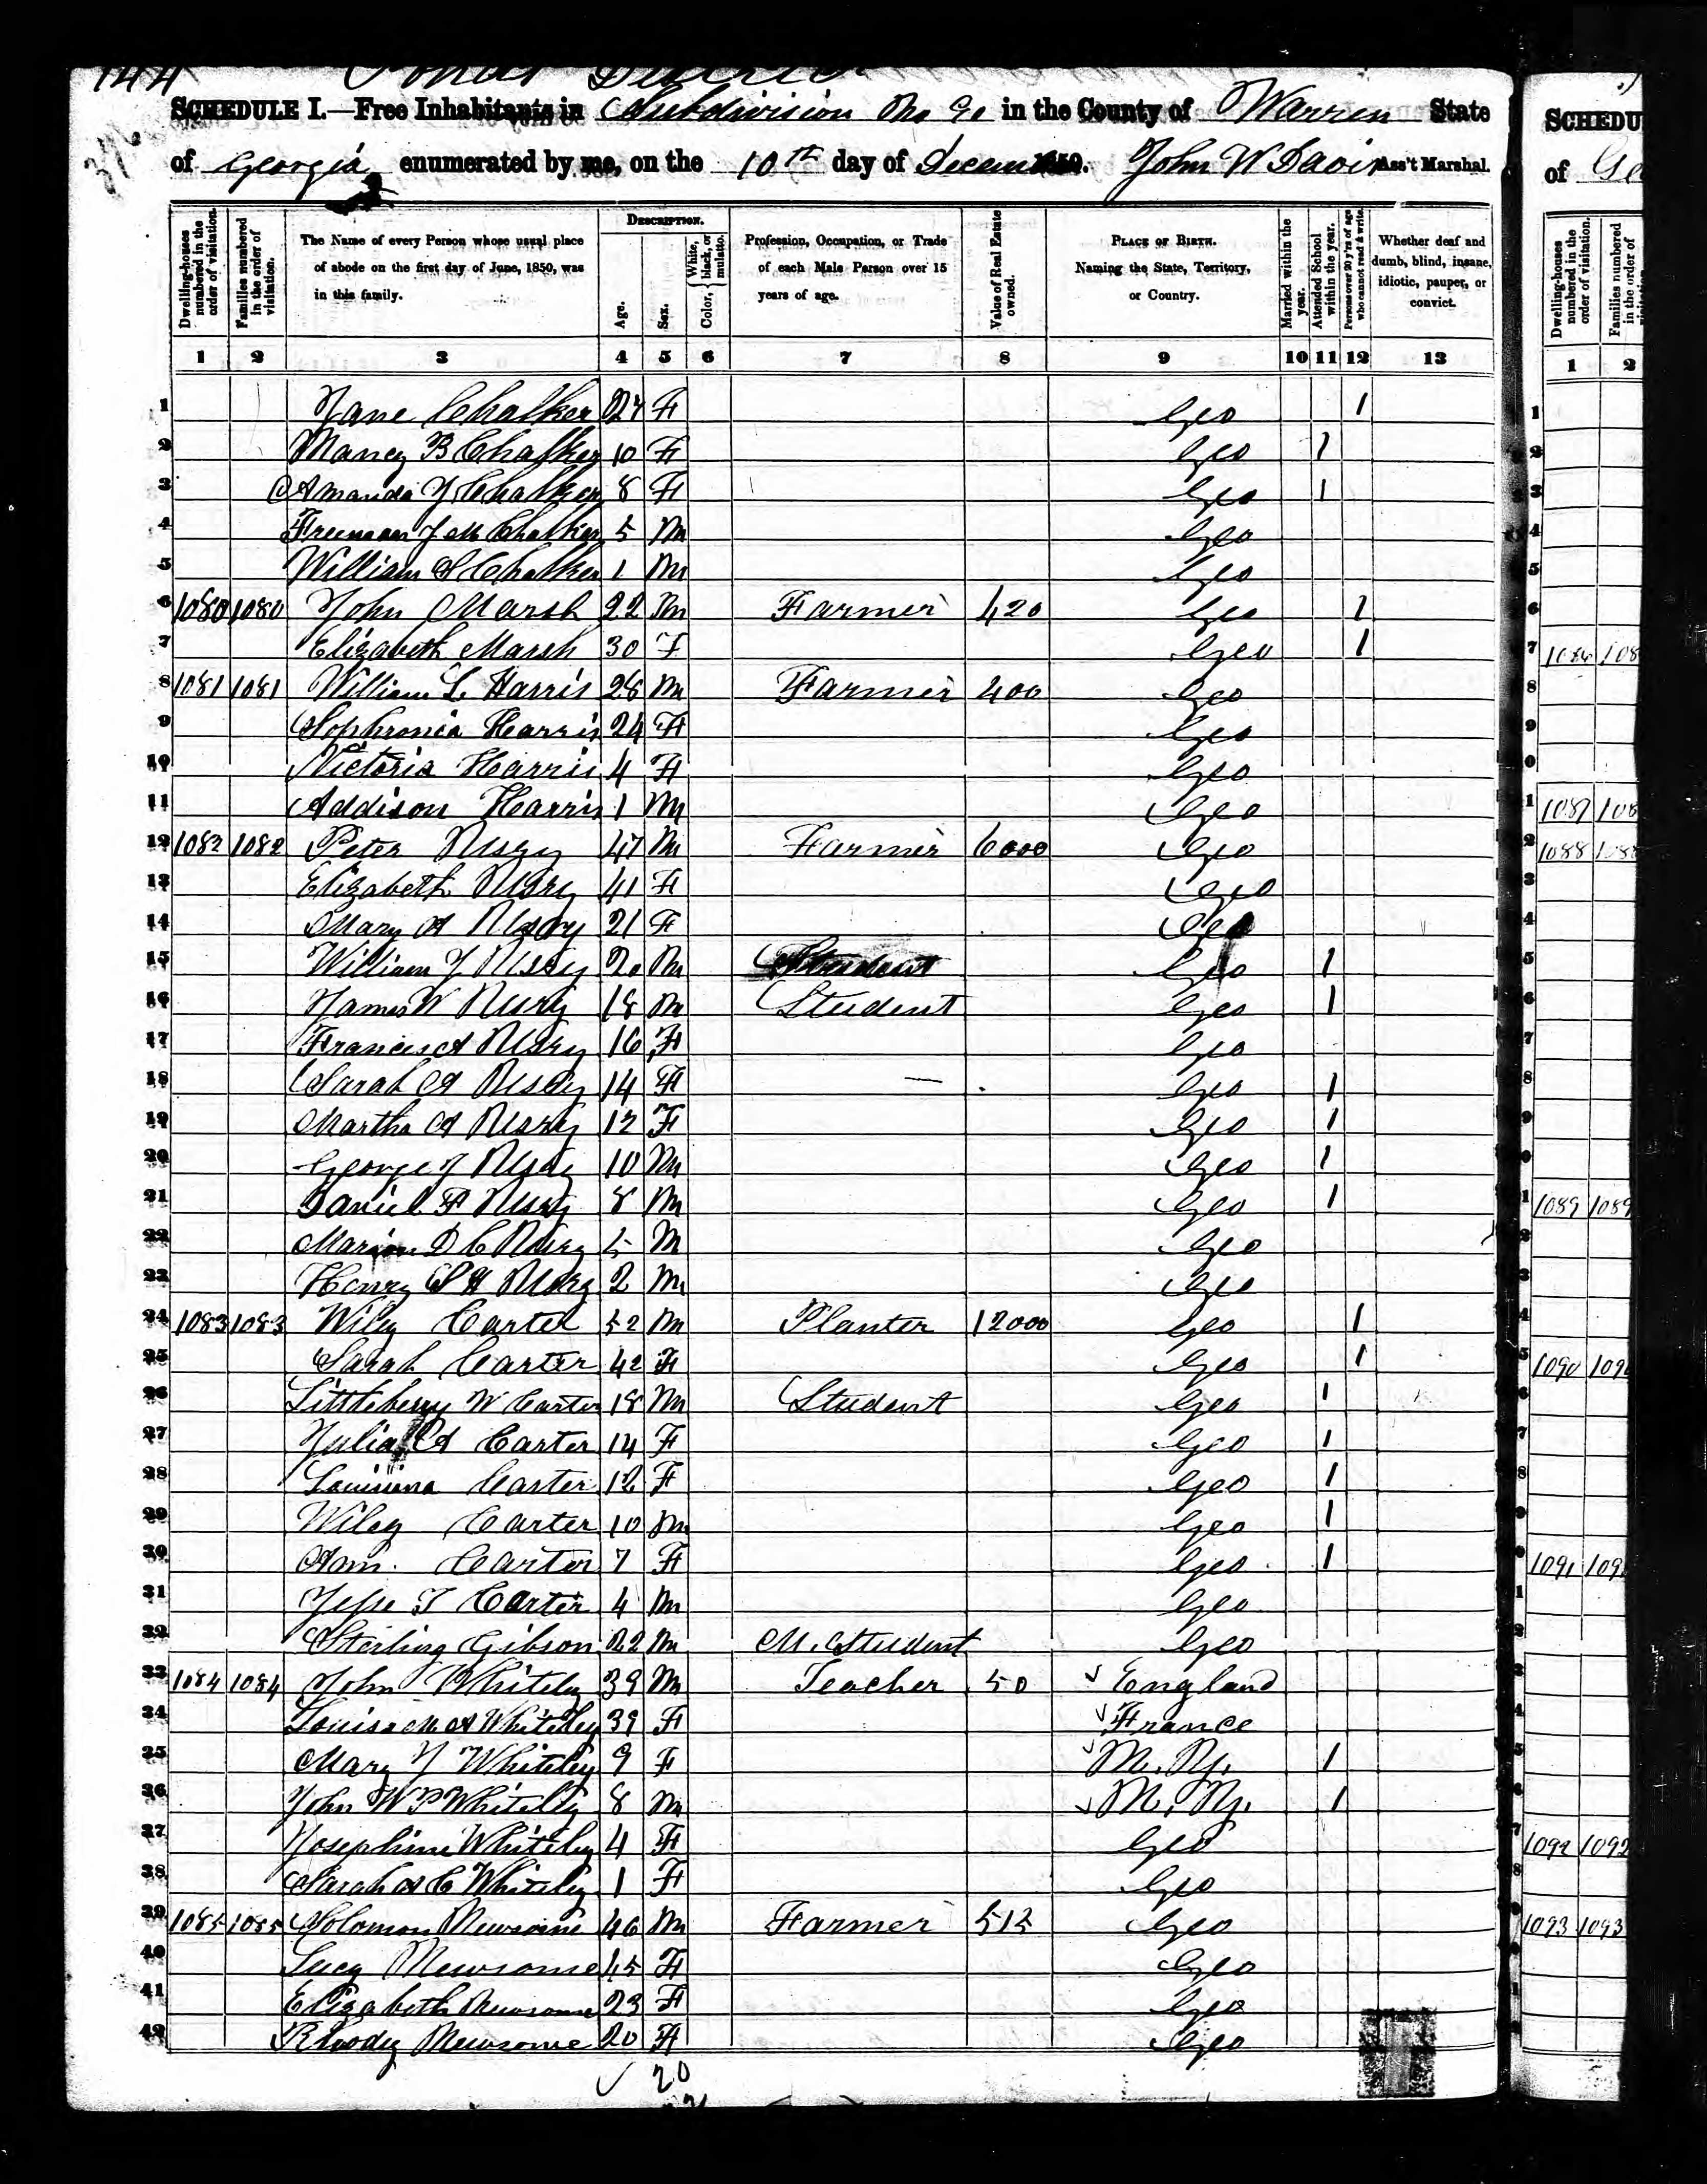 144
SCHEDULE I.—Free Inhabitants in Subdivision No 90 in the County of Warren State
of Georgia enumerated by me, on the 10th day of Decem 1850. John W Davis Ass't Marshal.
Dwelling-houses numbered in the order of visitation.
Families numbered in the order of visitation.
The Name of every Person whose usual place of abode on the first day of June, 1850, was in this family.
DESCRIPTION.
Age.
Sex.
Color, White, black, or mulatto.
Profession, Occupation, or Trade of each Male Person over 15 years of age.
Value of Real Estate owned.
PLACE OF BIRTH. Naming the State, Territory, or Country.
Married within the year.
Attended School within the year.
Persons over 20 y'rs of age who cannot read & write.
Whether deaf and dumb, blind, insane, idiotic, pauper, or convict.
1 2 3 4 5 6 7 8 9 10 11 12 13
1 Jane Chalker 27 F Geo 1
2 Nancy B Chalker 10 F Geo 1
3 Amanda J Chalker 8 F Geo 1
4 Freeman J M Chalker 5 M Geo
5 William S Chalker 1 M Geo
6 1080 1080 John Marsh 22 M Farmer 420 Geo 1
7 Elizabeth Marsh 30 F Geo 1
8 1081 1081 William L Harris 28 M Farmer 400 Geo
9 Sophronia Harris 24 F Geo
10 Victoria Harris 4 F Geo
11 Addison Harris 1 M Geo
12 1082 1082 Peter Usry 47 M Farmer 6000 Geo
13 Elizabeth Usry 41 F Geo
14 Mary A Usry 21 F Geo
15 William J Usry 20 M Student Geo 1
16 James W Usry 18 M Student Geo 1
17 Francis A Usry 16 F Geo
18 Sarah A Usry 14 F Geo 1
19 Martha A Usry 12 F Geo 1
20 George J Usry 10 M Geo 1
21 Daniel F Usry 8 M Geo 1
22 Marion D C Usry 5 M Geo
23 Henry Usry 2 M Geo
24 1083 1083 Wiley Carter 52 M Planter 12000 Geo 1
25 Sarah Carter 42 F Geo 1
26 Littleberry W Carter 18 M Student Geo 1
27 Julia A Carter 14 F Geo 1
28 Louisiana Carter 12 F Geo 1
29 Wiley Carter 10 M Geo 1
30 Ann Carter 7 F Geo 1
31 Jesse T Carter 4 M Geo
32 Sterling Gibson 22 M M. Student Geo
33 1084 1084 John Whiteley 39 M Teacher 50 England
34 Louisa M A Whiteley 39 F France
35 Mary J Whiteley 9 F N. Y. 1
36 John W P Whiteley 8 M N. Y. 1
37 Josephine Whiteley 4 F Geo
38 Sarah A C Whiteley 1 F Geo
39 1085 1085 Solomon Newsome 46 M Farmer 515 Geo
40 Lucy Newsome 45 F Geo
41 Elizabeth Newsome 23 F Geo
42 Rhody Newsome 20 F Geo
20
SCHEDU
of Ge
Dwelling-houses numbered in the order of visitation.
Families numbered in the order of
1 2
1087 108
1088 108
1089 1089
1090 109
1091 109
1092 1092
1093 1093